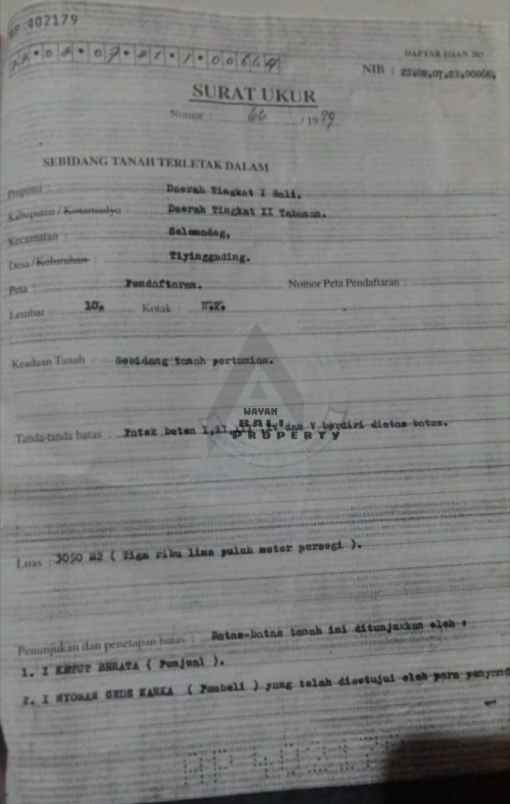 402179
DAFTAR ISIAN 207
NIB :
SURAT UKUR
Nomor : 66 / 1999
SEBIDANG TANAH TERLETAK DALAM
Propinsi : Daerah Tingkat I Bali.
Kabupaten / Kotamadya : Daerah Tingkat II Tabanan.
Kecamatan : Selemadeg,
Desa / Kelurahan : Tiyinggading.
Peta : Pendaftaran. Nomor Peta Pendaftaran :
Lembar : 10, Kotak :
Keadaan Tanah : Sebidang tanah pertanian.
WAYAN
Tanda-tanda batas : Patak beton I,II,III,IV dan V berdiri diatas batas.
BALI
PROPERTY
Luas : 3050 M2 ( Tiga ribu lima puluh meter persegi ).
Penunjukan dan penetapan batas : Batas-batas tanah ini ditunjukkan oleh :
1. I KETUT BERATA ( Penjual ).
2. I NYOMAN GEDE KARKA ( Pembeli ) yang telah disetujui oleh para penyand